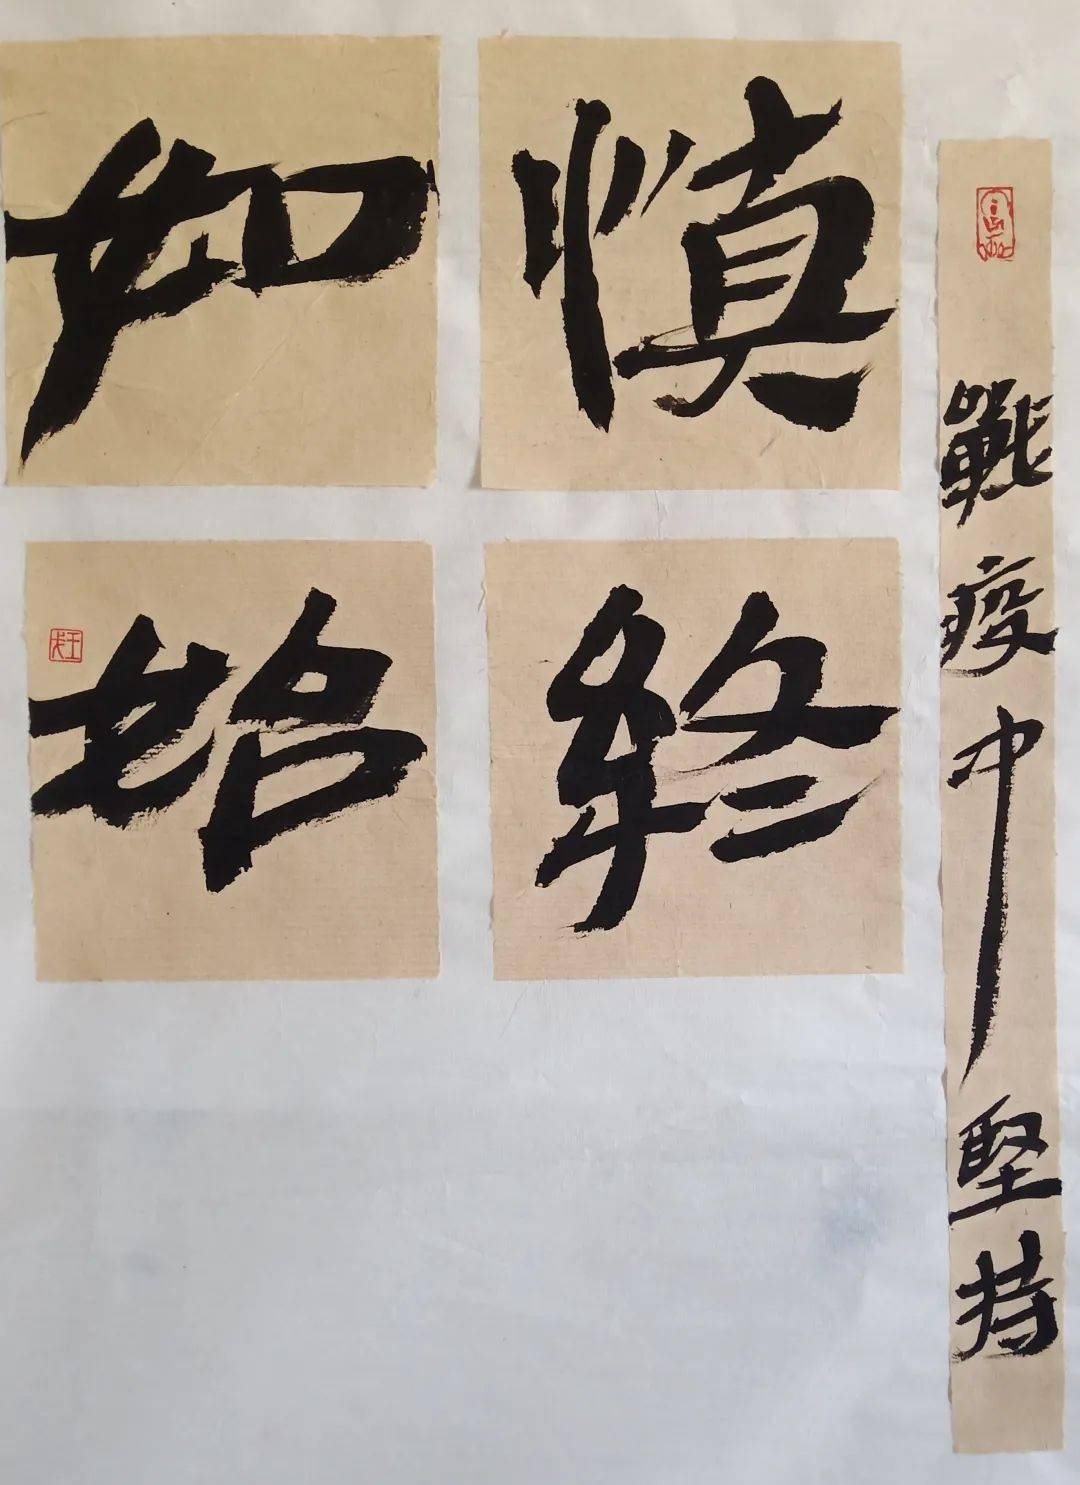 戰疫中堅持
慎終
如始